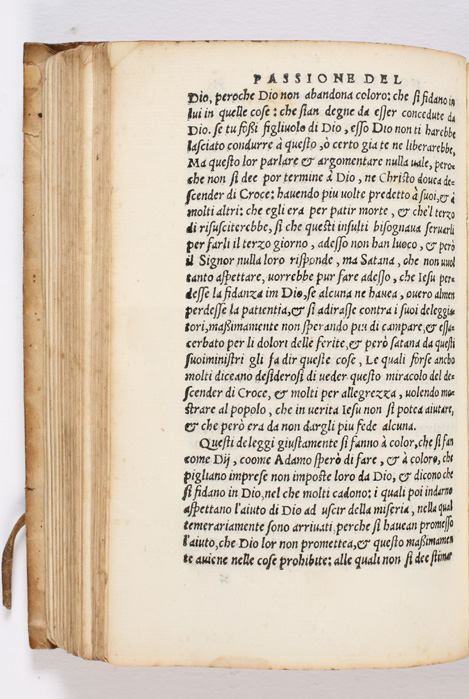 PASSIONE DEL
Dio, peroche Dio non abandona coloro: che si fidano in
lui in quelle cose: che sian degne da esser concedute da
Dio. se tu foßi figliuolo di Dio, esso Dio non ti harebbe
lasciato condurre à questo, ò certo gia te ne liberarebbe,
Ma questo lor parlare & argomentare nulla uale, pero=
che non si dee por termine à Dio, ne Christo douea de=
scender di Croce: hauendo piu uolte predetto à suoi, & à
molti altri: che egli era per patir morte, & che'l terzo
di risusciterebbe, si che questi insulti bisognaua seruarli
per farli il terzo giorno, adesso non han luoco, & però
il Signor nulla loro risponde, ma Satana, che non uuol
tanto aspettare, uorrebbe pur fare adesso, che Iesu per=
desse la fidanza im Dio, se alcuna ne hauea, ouero almen
perdesse la patientia, & si adirasse contra i suoi deleggia
tori, maßimamente non sperando piu di campare, & essa=
cerbato per li dolori delle ferite, & però satana da questi
suoi ministri gli fa dir queste cose, Le quali forse ancho
molti diceano desiderosi di ueder questo miracolo del de=
scender di Croce, & molti per allegrezza, uolendo mo=
strare al popolo, che in uerita Iesu non si potea aiutare,
& che però era da non dargli piu fede alcuna.
Questi deleggi giustamente si fanno à color, che si fan
come Dij, coome Adamo sperò di fare, & à coloro, che
pigliano imprese non imposte loro da Dio, & dicono che
si fidano in Dio, nel che molti cadono; i quali poi indarno
aspettano l'aiuto di Dio ad uscir della miseria, nella qual
temerariamente sono arriuati, perche si hauean promesso
l'aiuto, che Dio lor non promettea, & questo maßimamen
te auiene nelle cose prohibite: alle quali non si dee stimar